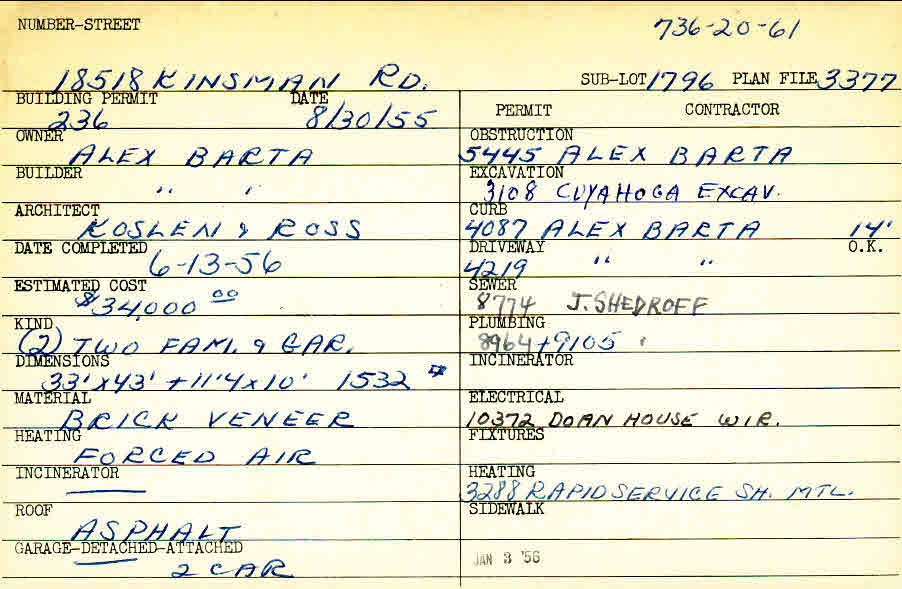 NUMBER-STREET
736-20-61
18518 KINSMAN RD.
SUB-LOT 1796 PLAN FILE 3377
BUILDING PERMIT DATE
236 8/30/55
OWNER
ALEX BARTA
BUILDER
" "
ARCHITECT
KOSLEN & ROSS
DATE COMPLETED
6-13-56
ESTIMATED COST
$34,000 00
KIND
(2) TWO FAM. & GAR.
DIMENSIONS
33' x 43' + 11'4 x 10' 1532
MATERIAL
BRICK VENEER
HEATING
FORCED AIR
INCINERATOR
ROOF
ASPHALT
GARAGE-DETACHED-ATTACHED
2 CAR
PERMIT CONTRACTOR
OBSTRUCTION
5445 ALEX BARTA
EXCAVATION
3108 CUYAHOGA EXCAV.
CURB
4087 ALEX BARTA 14'
DRIVEWAY O.K.
4219 " "
SEWER
8774 J. SHEDROFF
PLUMBING
8964 + 9105 "
INCINERATOR
ELECTRICAL
10372 DOAN HOUSE WIR.
FIXTURES
HEATING
3288 RAPID SERVICE SH. MTL.
SIDEWALK
JAN 3 '56